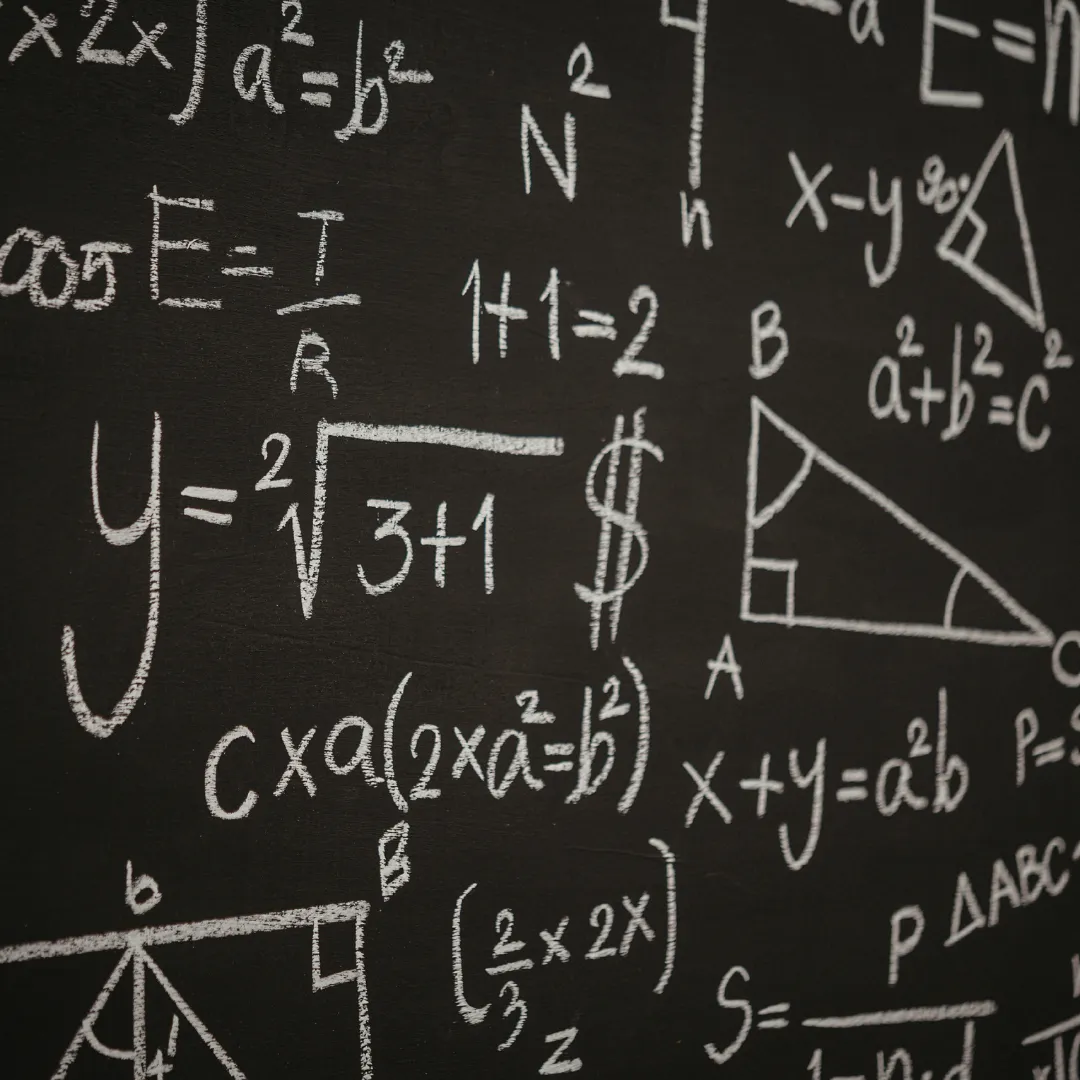 x 2x) a²=b²
N²
n
-a
E=
x-y 90°
cos E = T/R
1+1=2
B
a²+b²=c²
y = ²√3+1
$
A
C
c x a(2xa²=b²)
x+y=a²b
P=
b
B
(2/3 x 2x)
z
P ΔABC
S=